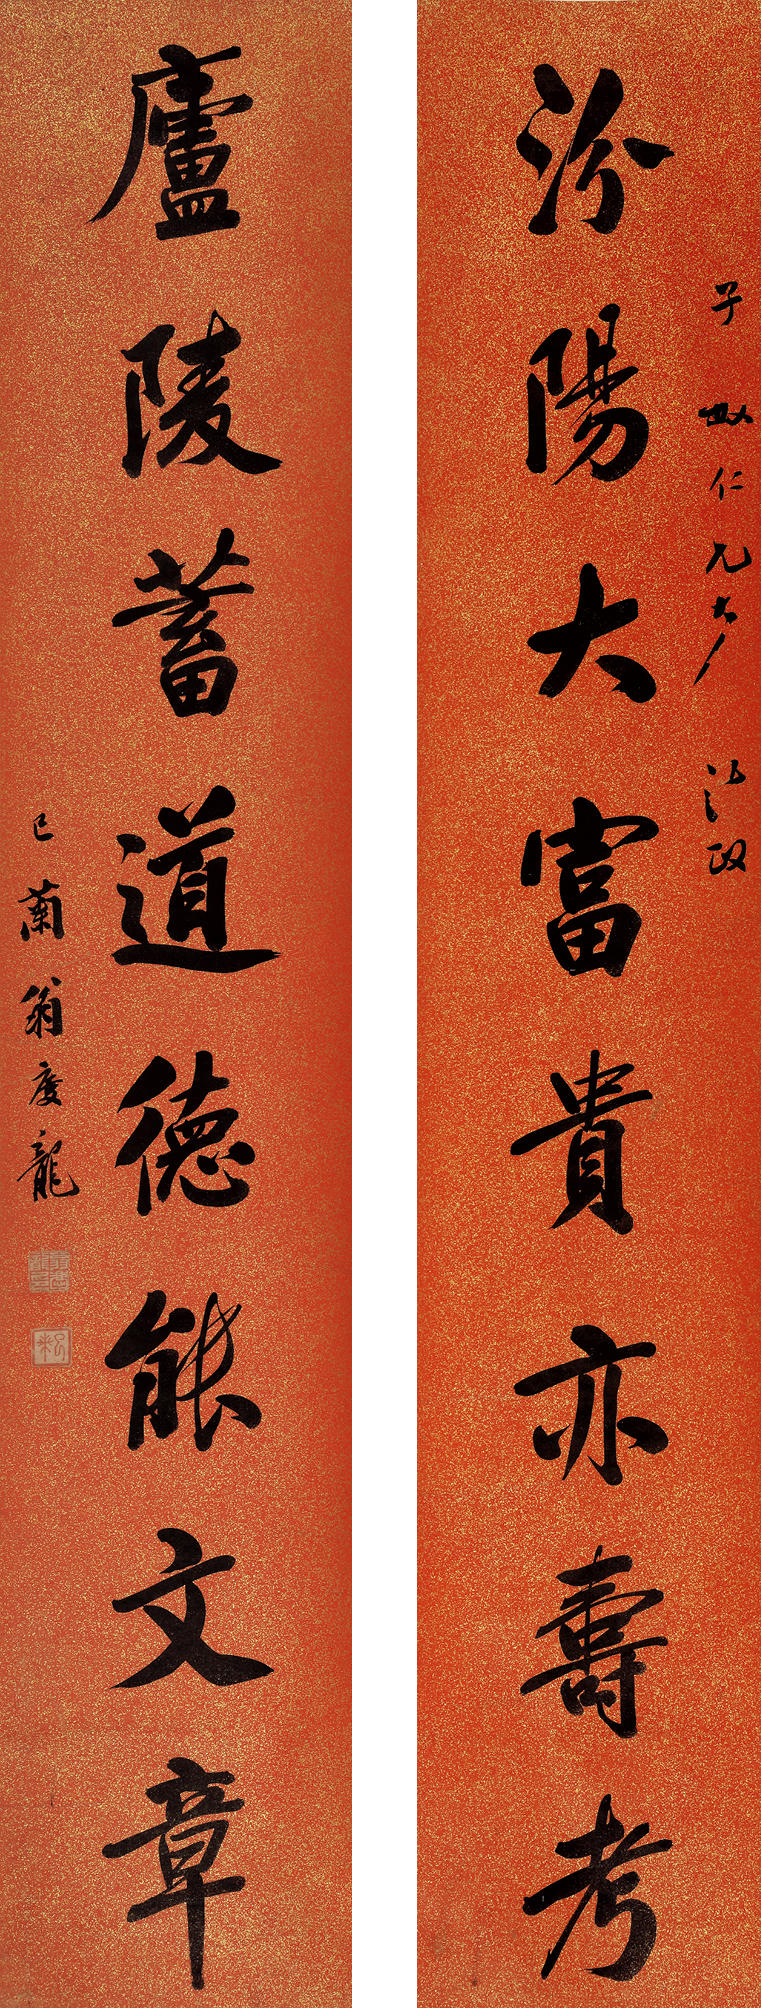 汾陽大富貴亦壽考
子 仁兄大人 法政
廬陵蓄道德能文章
巳蘭翁慶龍